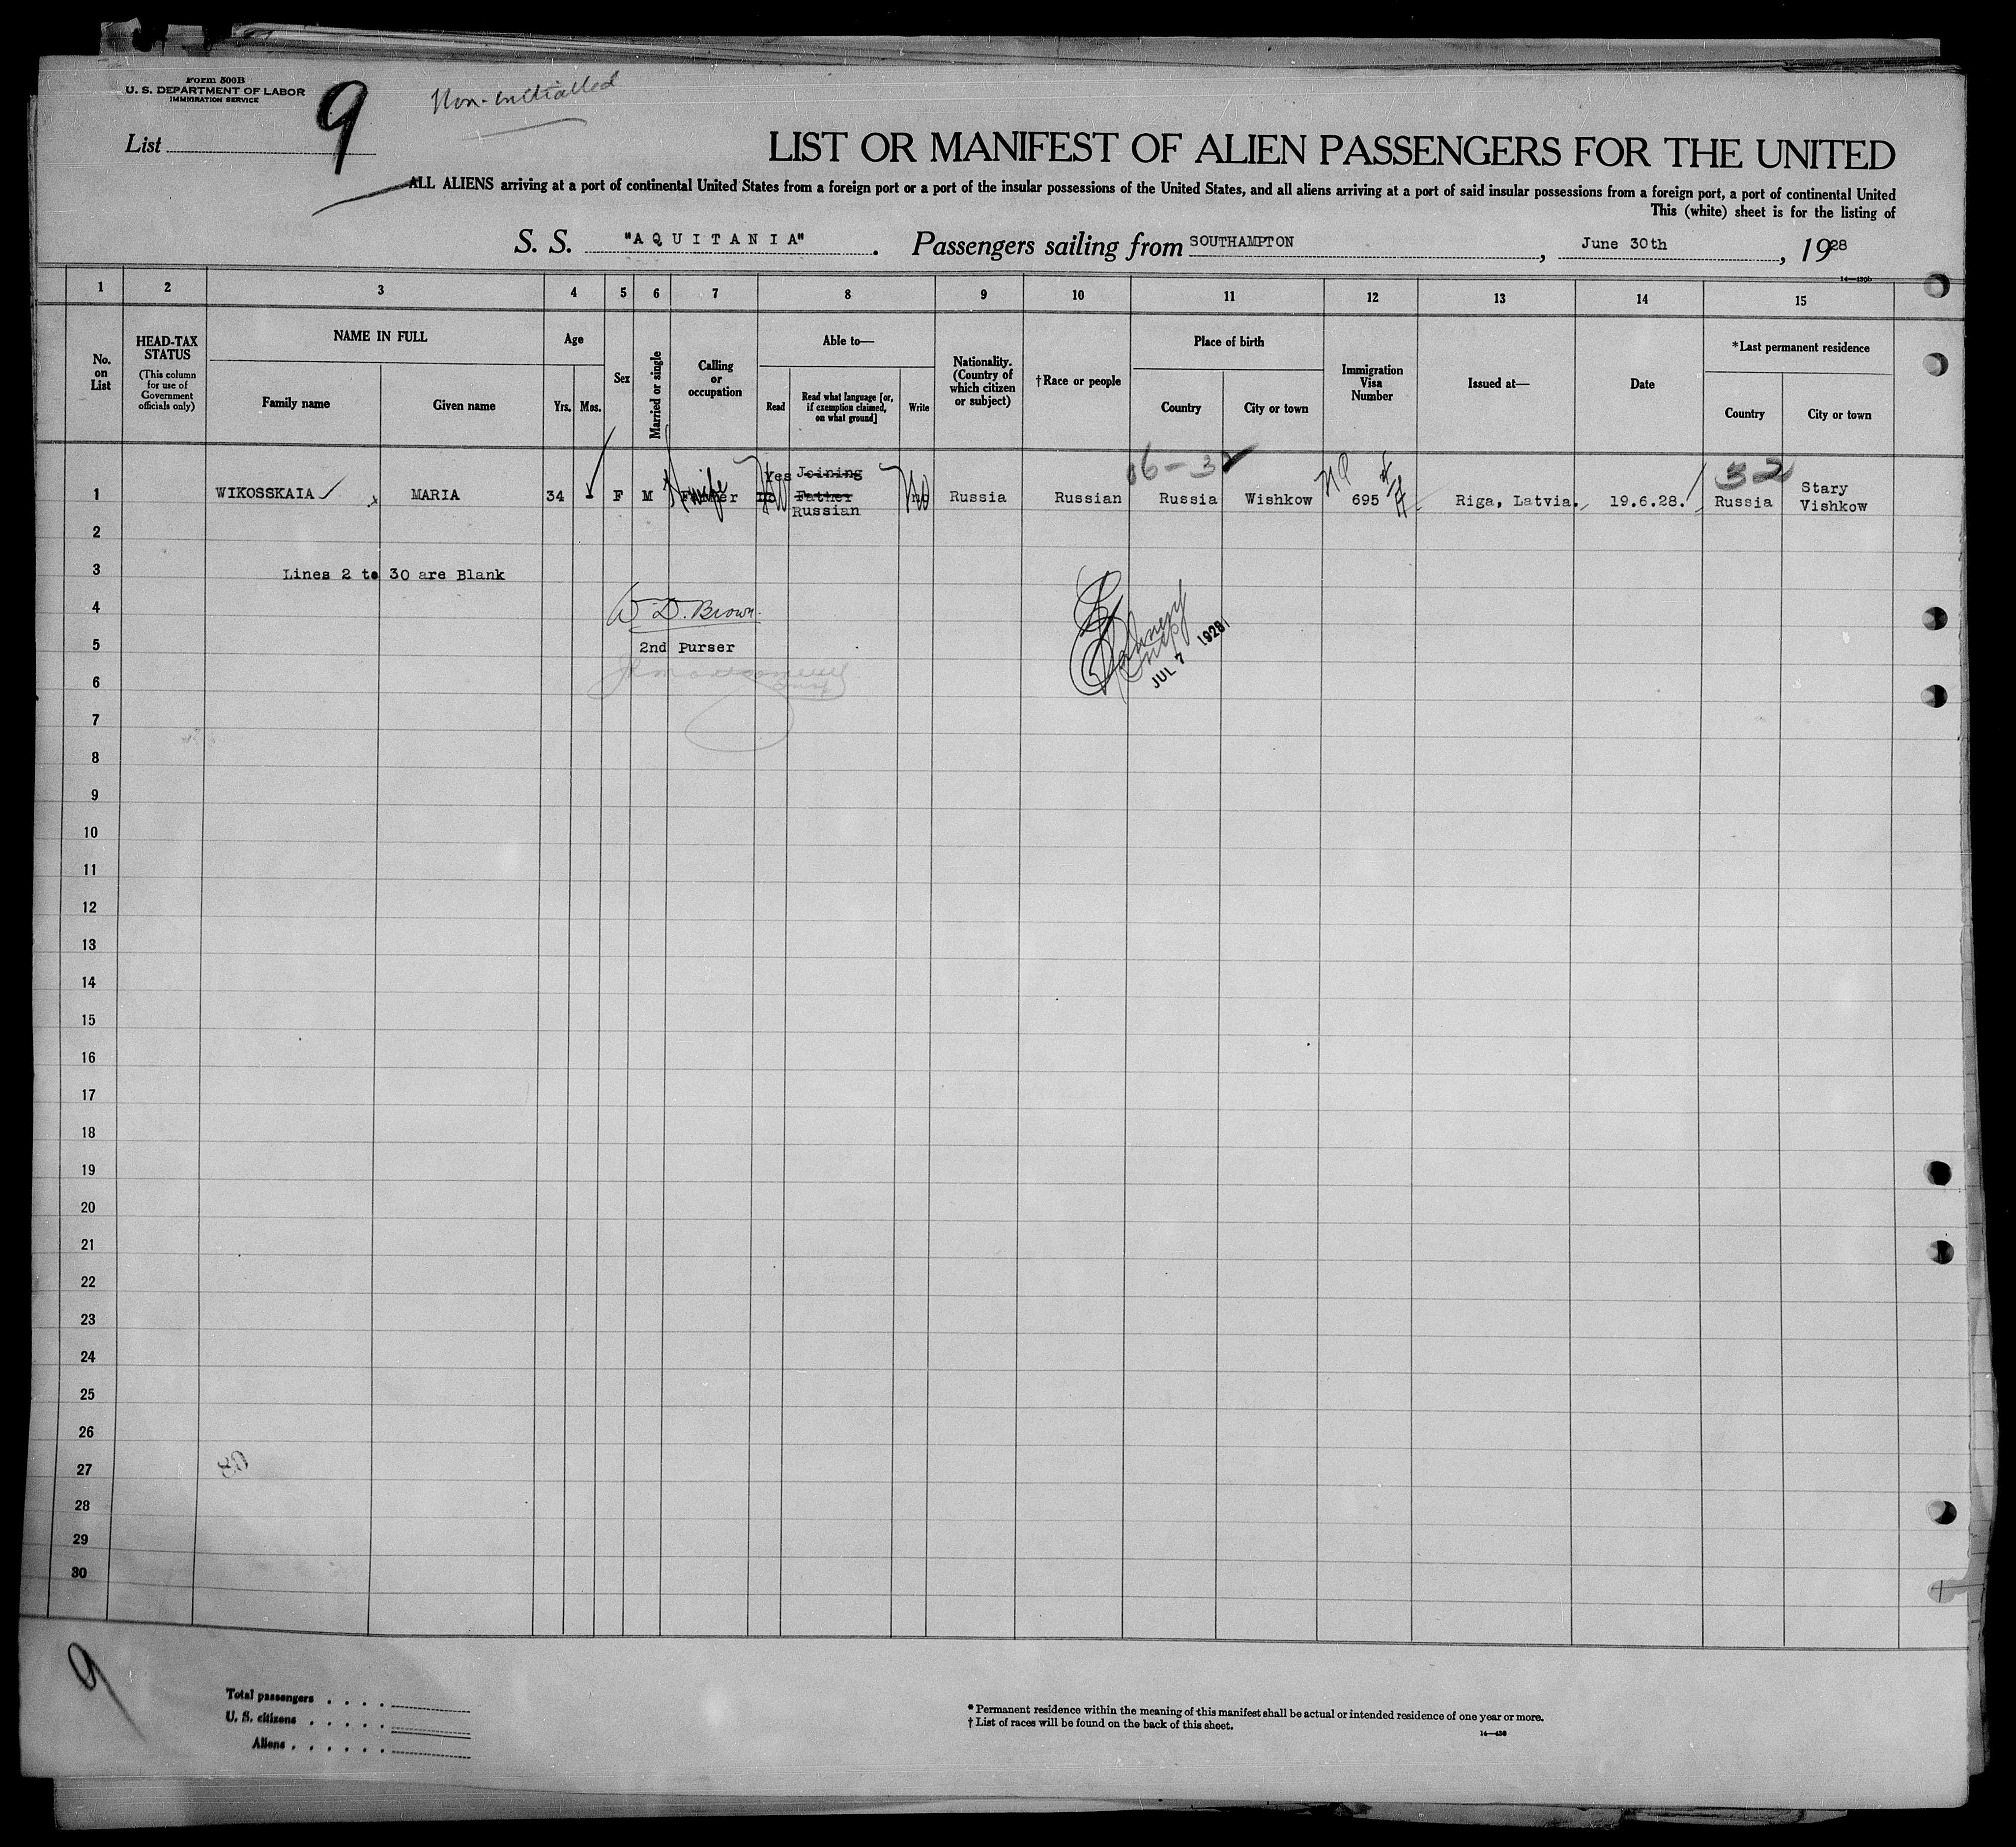 Form 500B
U. S. DEPARTMENT OF LABOR
IMMIGRATION SERVICE
List 9
Non-initialled
LIST OR MANIFEST OF ALIEN PASSENGERS FOR THE UNITED
ALL ALIENS arriving at a port of continental United States from a foreign port or a port of the insular possessions of the United States, and all aliens arriving at a port of said insular possessions from a foreign port, a port of continental United
This (white) sheet is for the listing of
S. S. "AQUITANIA". Passengers sailing from SOUTHAMPTON, June 30th, 1928
14—430b
1 2 3 4 5 6 7 8 9 10 11 12 13 14 15
No. on List
HEAD-TAX STATUS
(This column for use of Government officials only)
NAME IN FULL
Family name
Given name
Age
Yrs.
Mos.
Sex
Married or single
Calling or occupation
Able to—
Read
Read what language [or, if exemption claimed, on what ground]
Write
Nationality. (Country of which citizen or subject)
†Race or people
Place of birth
Country
City or town
Immigration Visa Number
Issued at—
Date
*Last permanent residence
Country
City or town
06-32
32
Yes Joining
1 WIKOSSKAIA MARIA 34 F M wife Father No Russia Russian Russia Wishkow 695 Riga, Latvia. 19.6.28. Russia Stary
Russian Vishkow
2
3 Lines 2 to 30 are Blank
4 W. D. Brown
5 2nd Purser
JUL 7 1928
6
7
8
9
10
11
12
13
14
15
16
17
18
19
20
21
22
23
24
25
26
27
28
29
30
9
Total passengers
U. S. citizens
Aliens
* Permanent residence within the meaning of this manifest shall be actual or intended residence of one year or more.
† List of races will be found on the back of this sheet.
14—430